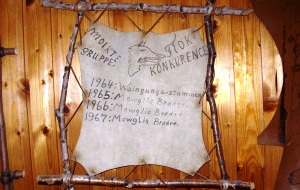 MOLKTE GRUPPE
STORK KONKURENCE
1964: Waingunga-stammen
1965: Mowglis Brødre.
1966: Mowglis Brødre
1967: Mowglis Brødre.